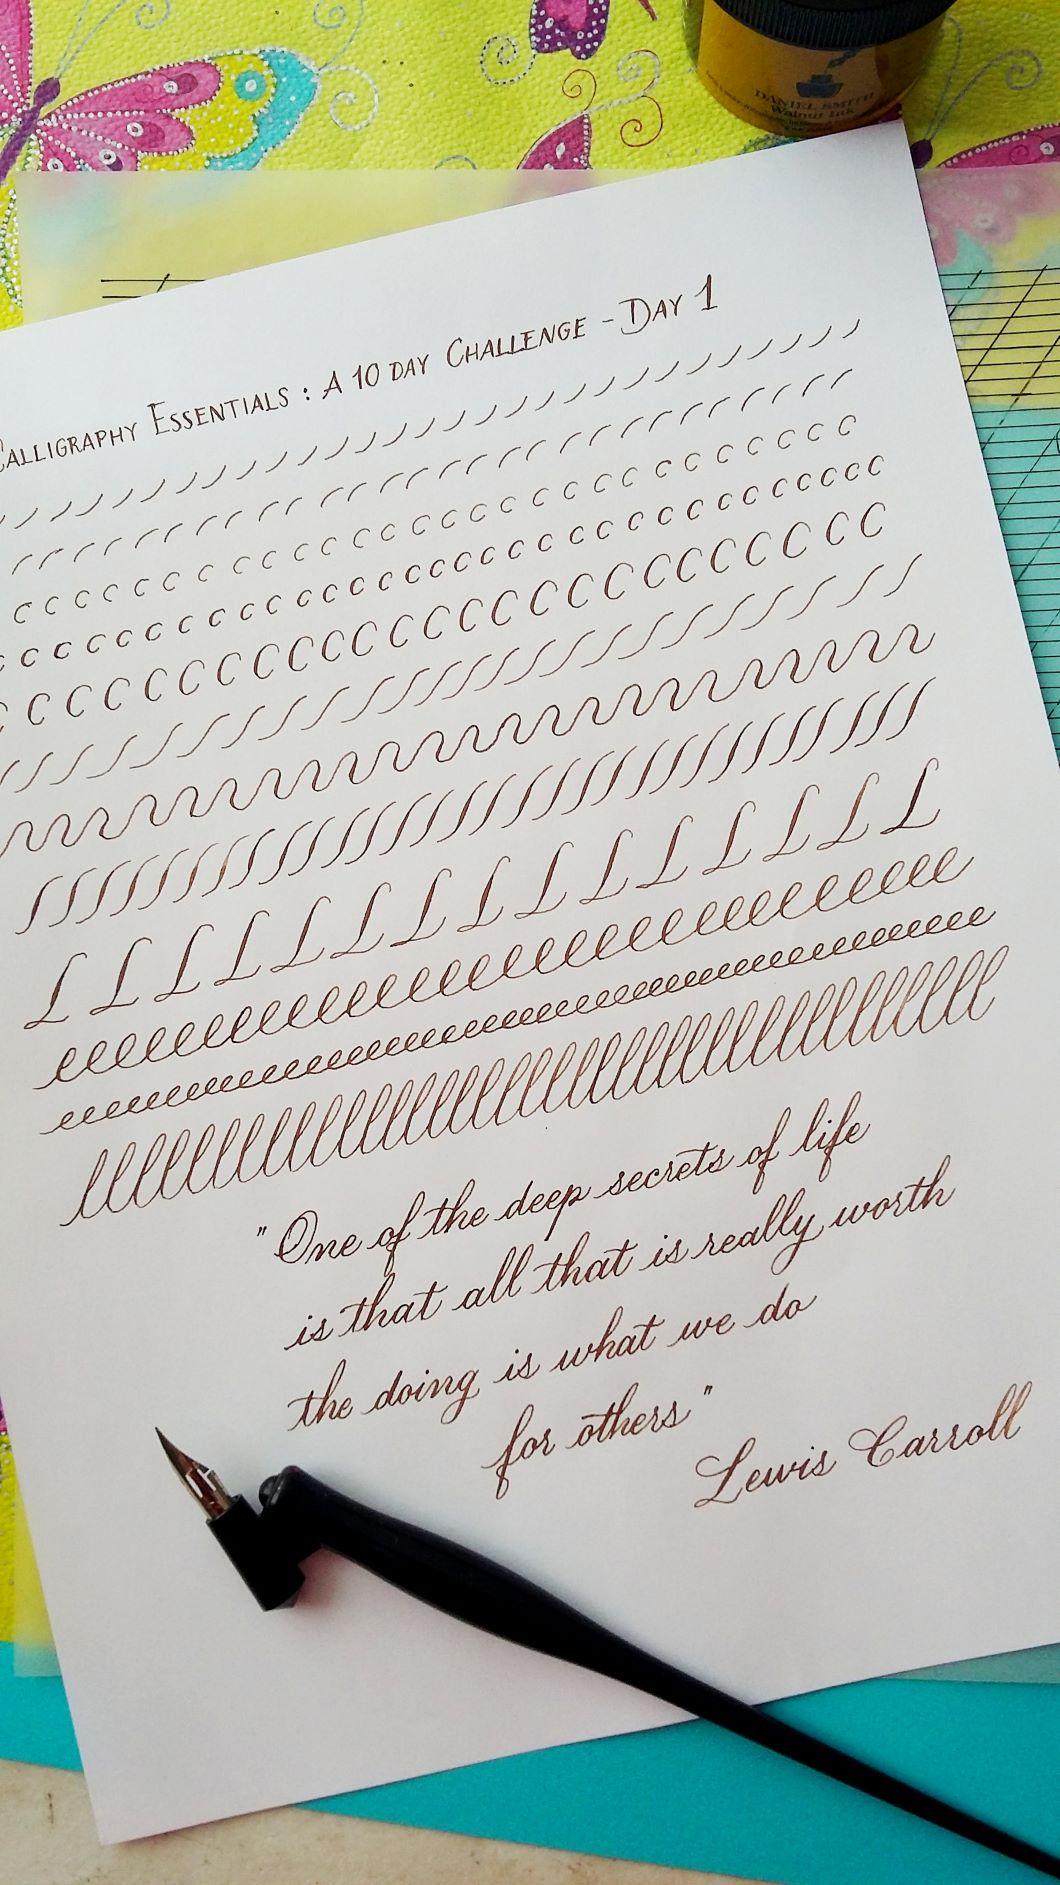 DANIEL SMITH
Walnut Ink
CALLIGRAPHY ESSENTIALS : A 10 DAY CHALLENGE - DAY 1
L L L L L L L L L L L L L L L
"One of the deep secrets of life
is that all that is really worth
the doing is what we do
for others"
Lewis Carroll